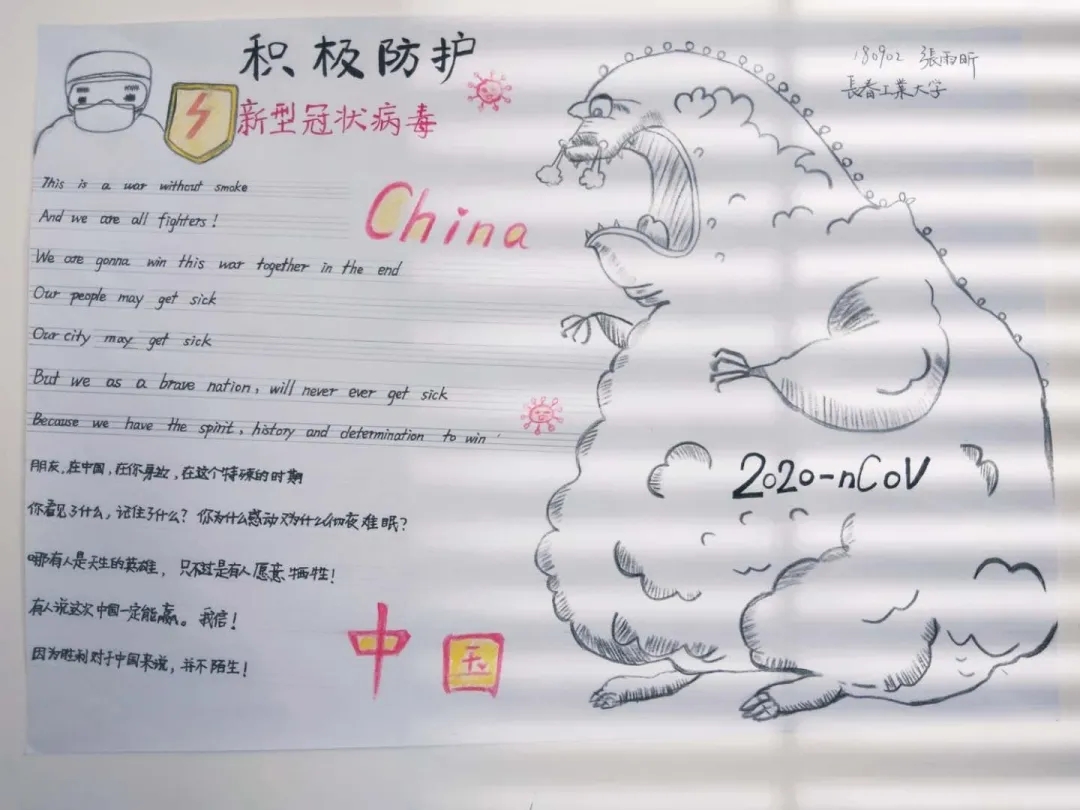 积极防护
新型冠状病毒
180902 張雨昕
長春工業大学
China
This is a war without smoke
And we are all fighters!
We are gonna win this war together in the end
Our people may get sick
Our city may get sick
But we as a brave nation, will never ever get sick
Because we have the spirit, history and determination to win
2020-nCoV
朋友,在中国,在你身边,在这个特殊的时期
你看见了什么,记住了什么?你为什么感动又为什么彻夜难眠?
哪有人是天生的英雄,只不过是有人愿意牺牲!
有人说这次中国一定能赢。我信!
因为胜利对于中国来说,并不陌生!
中国